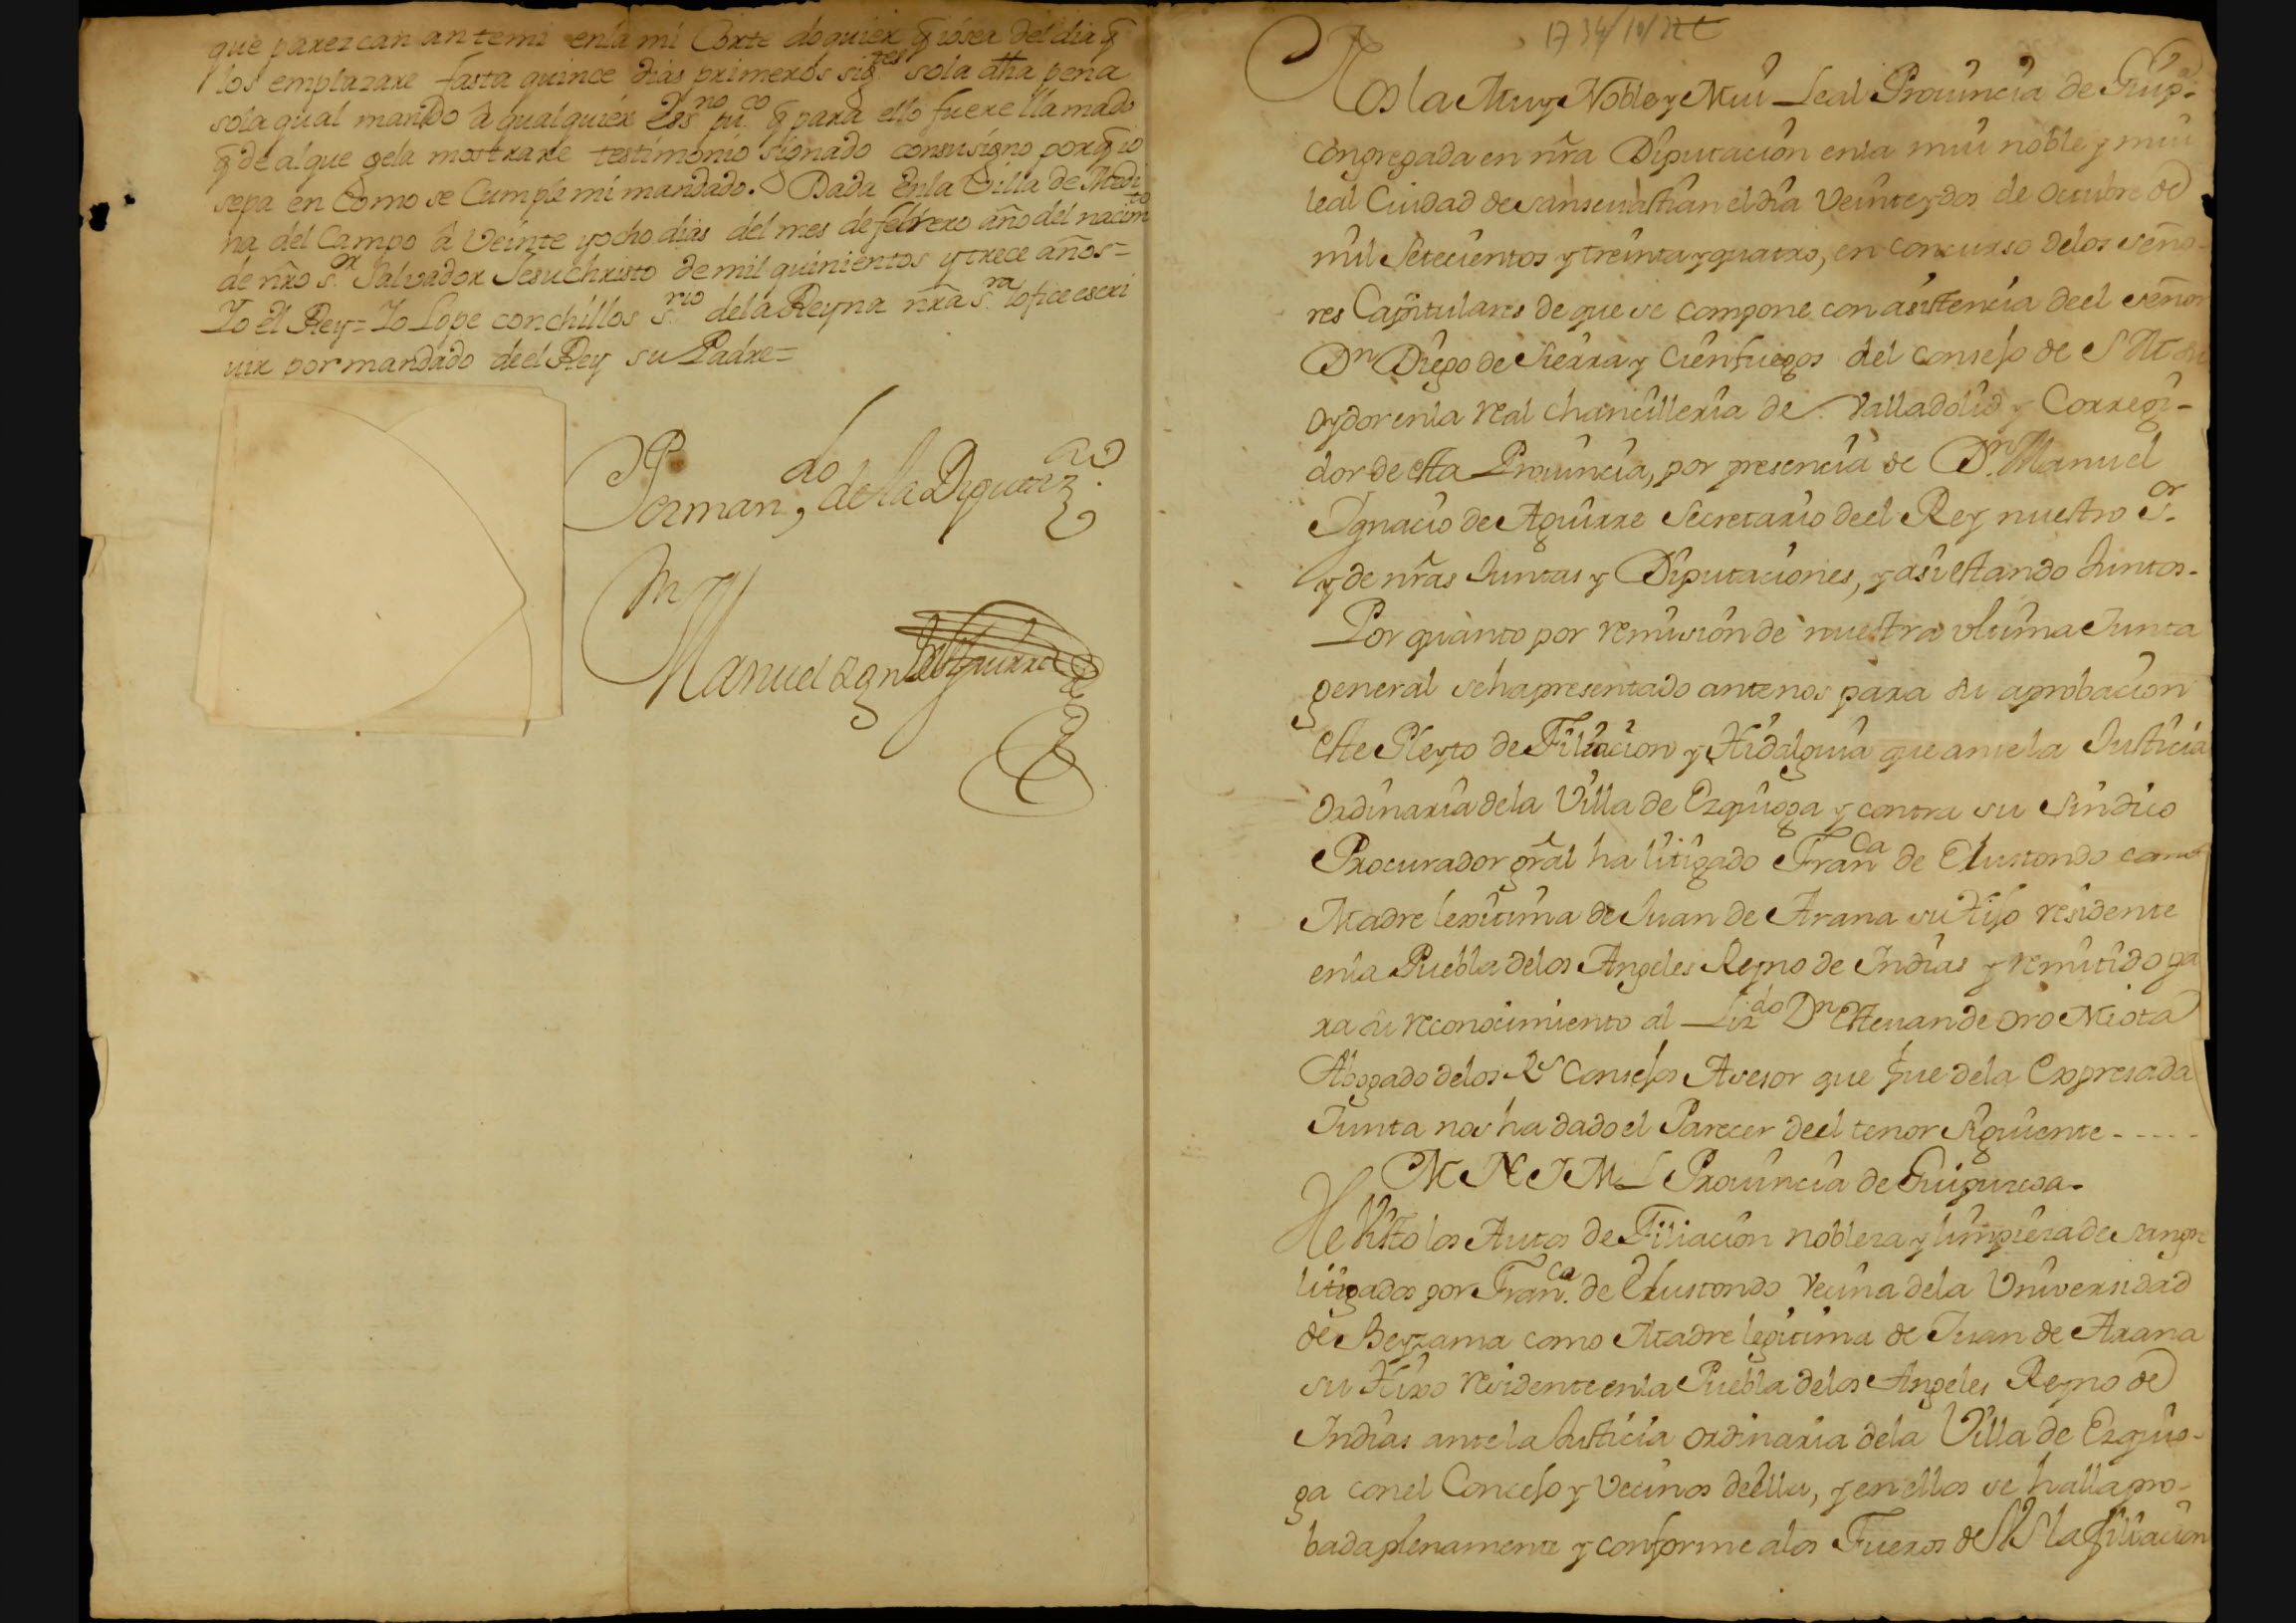 que parezcan antemi enla mi Corte doquier q̃ io sea del dia q̃
los emplazare fasta quince dias primeros sig.tes sola dha pena
sola qual mando à qualquier Ess.no pu.co q̃ para ello fuere llamado
q̃ de al que gela mostrare testimonio signado consusigno porq̃ io
sepa en Como se Cumple mi mandado. Dada enla Villa de Medi
na del Campo à Veinte yocho dias del mes de febrero año del nacim.to
de nr̃o S.or Salvador Jesuchristo de mil quinientos y trece años=
Yo el Rey= Yo Lope conchillos S.rio dela Reyna nr̃a S.ra lo fice escri
uir por mandado deel Rey su Padre=
Manuel Ign de Aguirre
1734/10/22
Nos la Muy Noble y Mui Leal Prouincia de Guip.a
Congregada en nr̃a Diputacion enla mui noble y mui
leal Ciudad de sanseuastian el dia Veinte y dos de Octubre de
mil Setecientos y treinta y quatro, en concurso delos seño-
res Capitulares de que se compone con asistencia deel señor
Dn Diego de Sierra y Cienfuegos del consejo de S M su
oydor enla real chancilleria de Valladolid y Corregi-
dor de esta Prouincia, por presencia de Dn Manuel
Ignacio de Aguirre Secretario deel Rey nuestro S.or
y de nr̃as Juntas y Diputaciones, y asi estando Juntos-
Por quanto por remision de nuestra vltima Junta
general seha presentado antenos para su aprobacion
este Pleyto de Filiacion y Hidalguia que ante la Justicia
Ordinaria dela Villa de Ezquioga y contra su Sindico
Procurador gr̃al ha litigado Fran.ca de Elustondo como
Madre lexitima de Juan de Arana su Hijo residente
enla Puebla delos Angeles Reyno de Indias y remitido pa
ra su reconocimiento al Liz.do Dn Esteuan de Oro Miota
Abogado delos R.s Consejos Asesor que fue dela Expresada
Junta nos ha dado el Parecer deel tenor siguiente - - - - -
M N I M L Prouincia de Guipuzcoa-
He Visto los Autos de Filiacion nobleza y limpieza de sangre
litigados por Fran.ca de Elustondo Vecina dela Universidad
de Beyzama como Madre legitima de Juan de Arana
su Hixo residente enla Puebla delos Angeles Reyno de
Indias ante la Justicia ordinaria dela Villa de Ezquio-
ga conel Concejo y Vecinos deella, y en ellos se halla pro-
bada plenamente y conforme alos Fueros de V S la filiacion